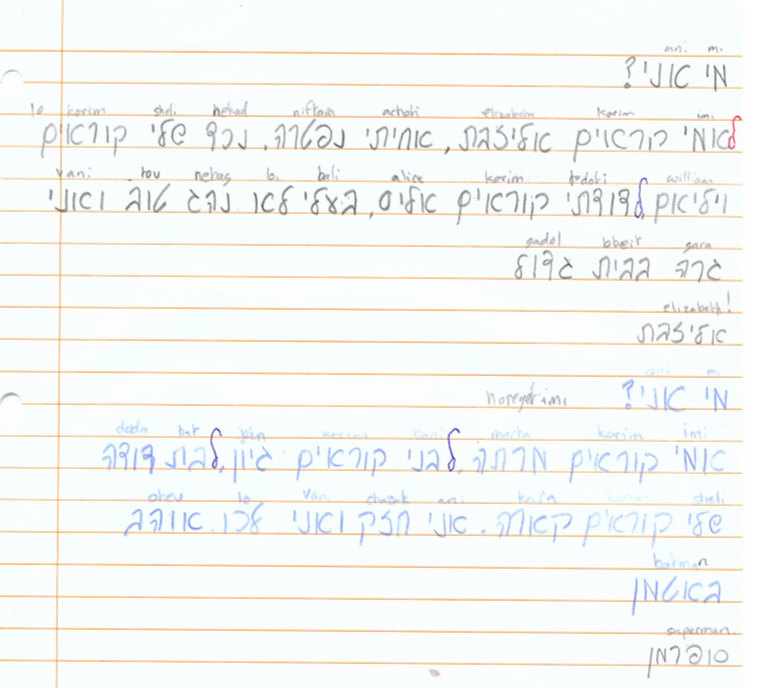 ani mi
מי אני?
lo korim sheli nehad niftara achoti elizabeth korim imi
לאמי קוראים אליזבת, אחיתי נפטרה. נכד שלי קוראים
vani tov nehag lo bali alice korim dodati william
ויליאם לדודתי קוראים אליס, בעלי לא נהג טוב ואני
gadol bbeit gara
גרה בבית גדול
elizabeth!
אליזבת
ani mi
מי אני?
doda bat john korim vani marta korim imi
אמי קוראים מרתה. לבני קוראים גיון, לבת דודה
ohev lo vani chazak ani kara korim sheli
שלי קוראים קארה. אני חזק ואני לכו אווהב
batman
באטמן
superman
סופרמן